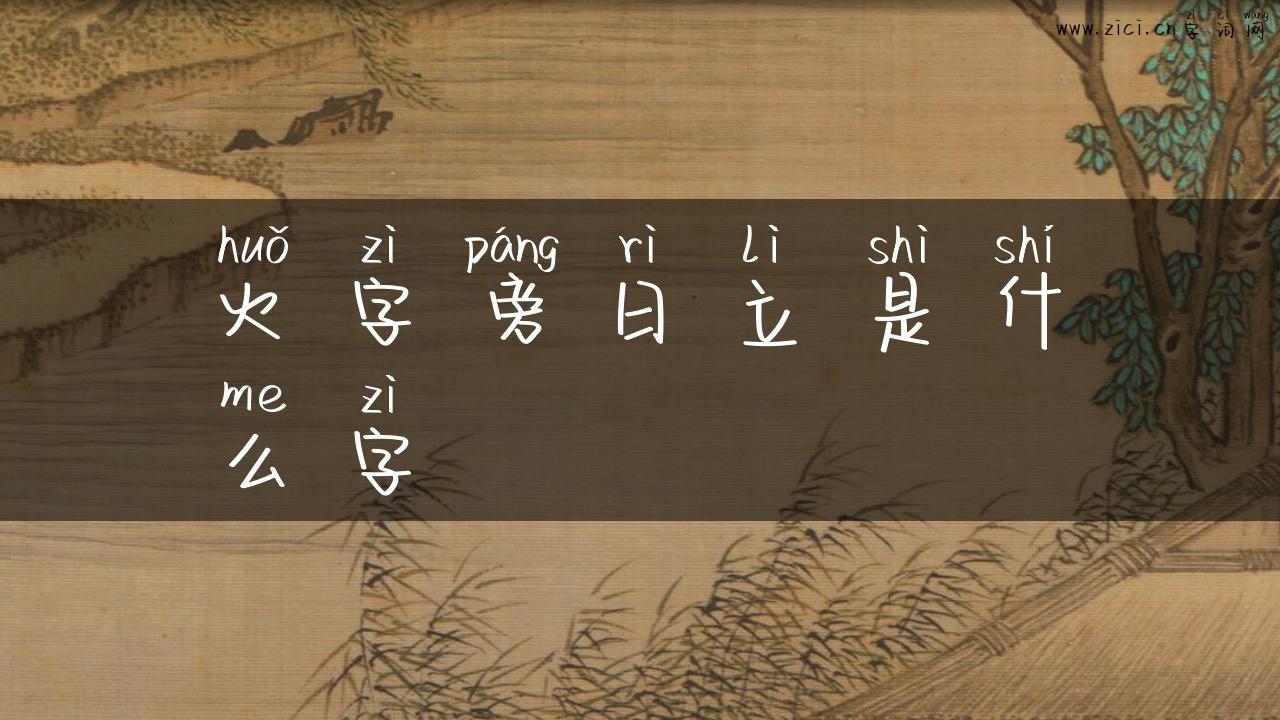 zì cí wǎng
www.zici.cn字词网
huǒ zì páng rì lì shì shí
火字旁日立是什
me zì
么字